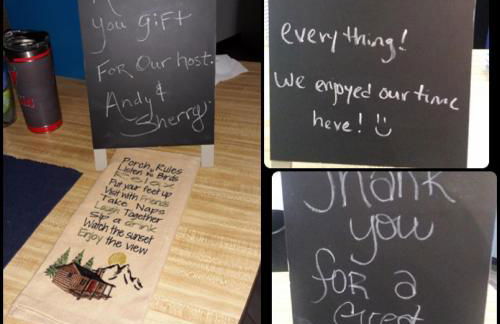 you gift
For Our host.
Andy &
Sherry
Porch Rules
Listen to Birds
Relax
Put your feet up
Visit with Friends
Take Naps
Laugh Together
Sip a drink
Watch the sunset
Enjoy the view
everything!
We enjoyed our time
here!
Thank
you
for a
Great